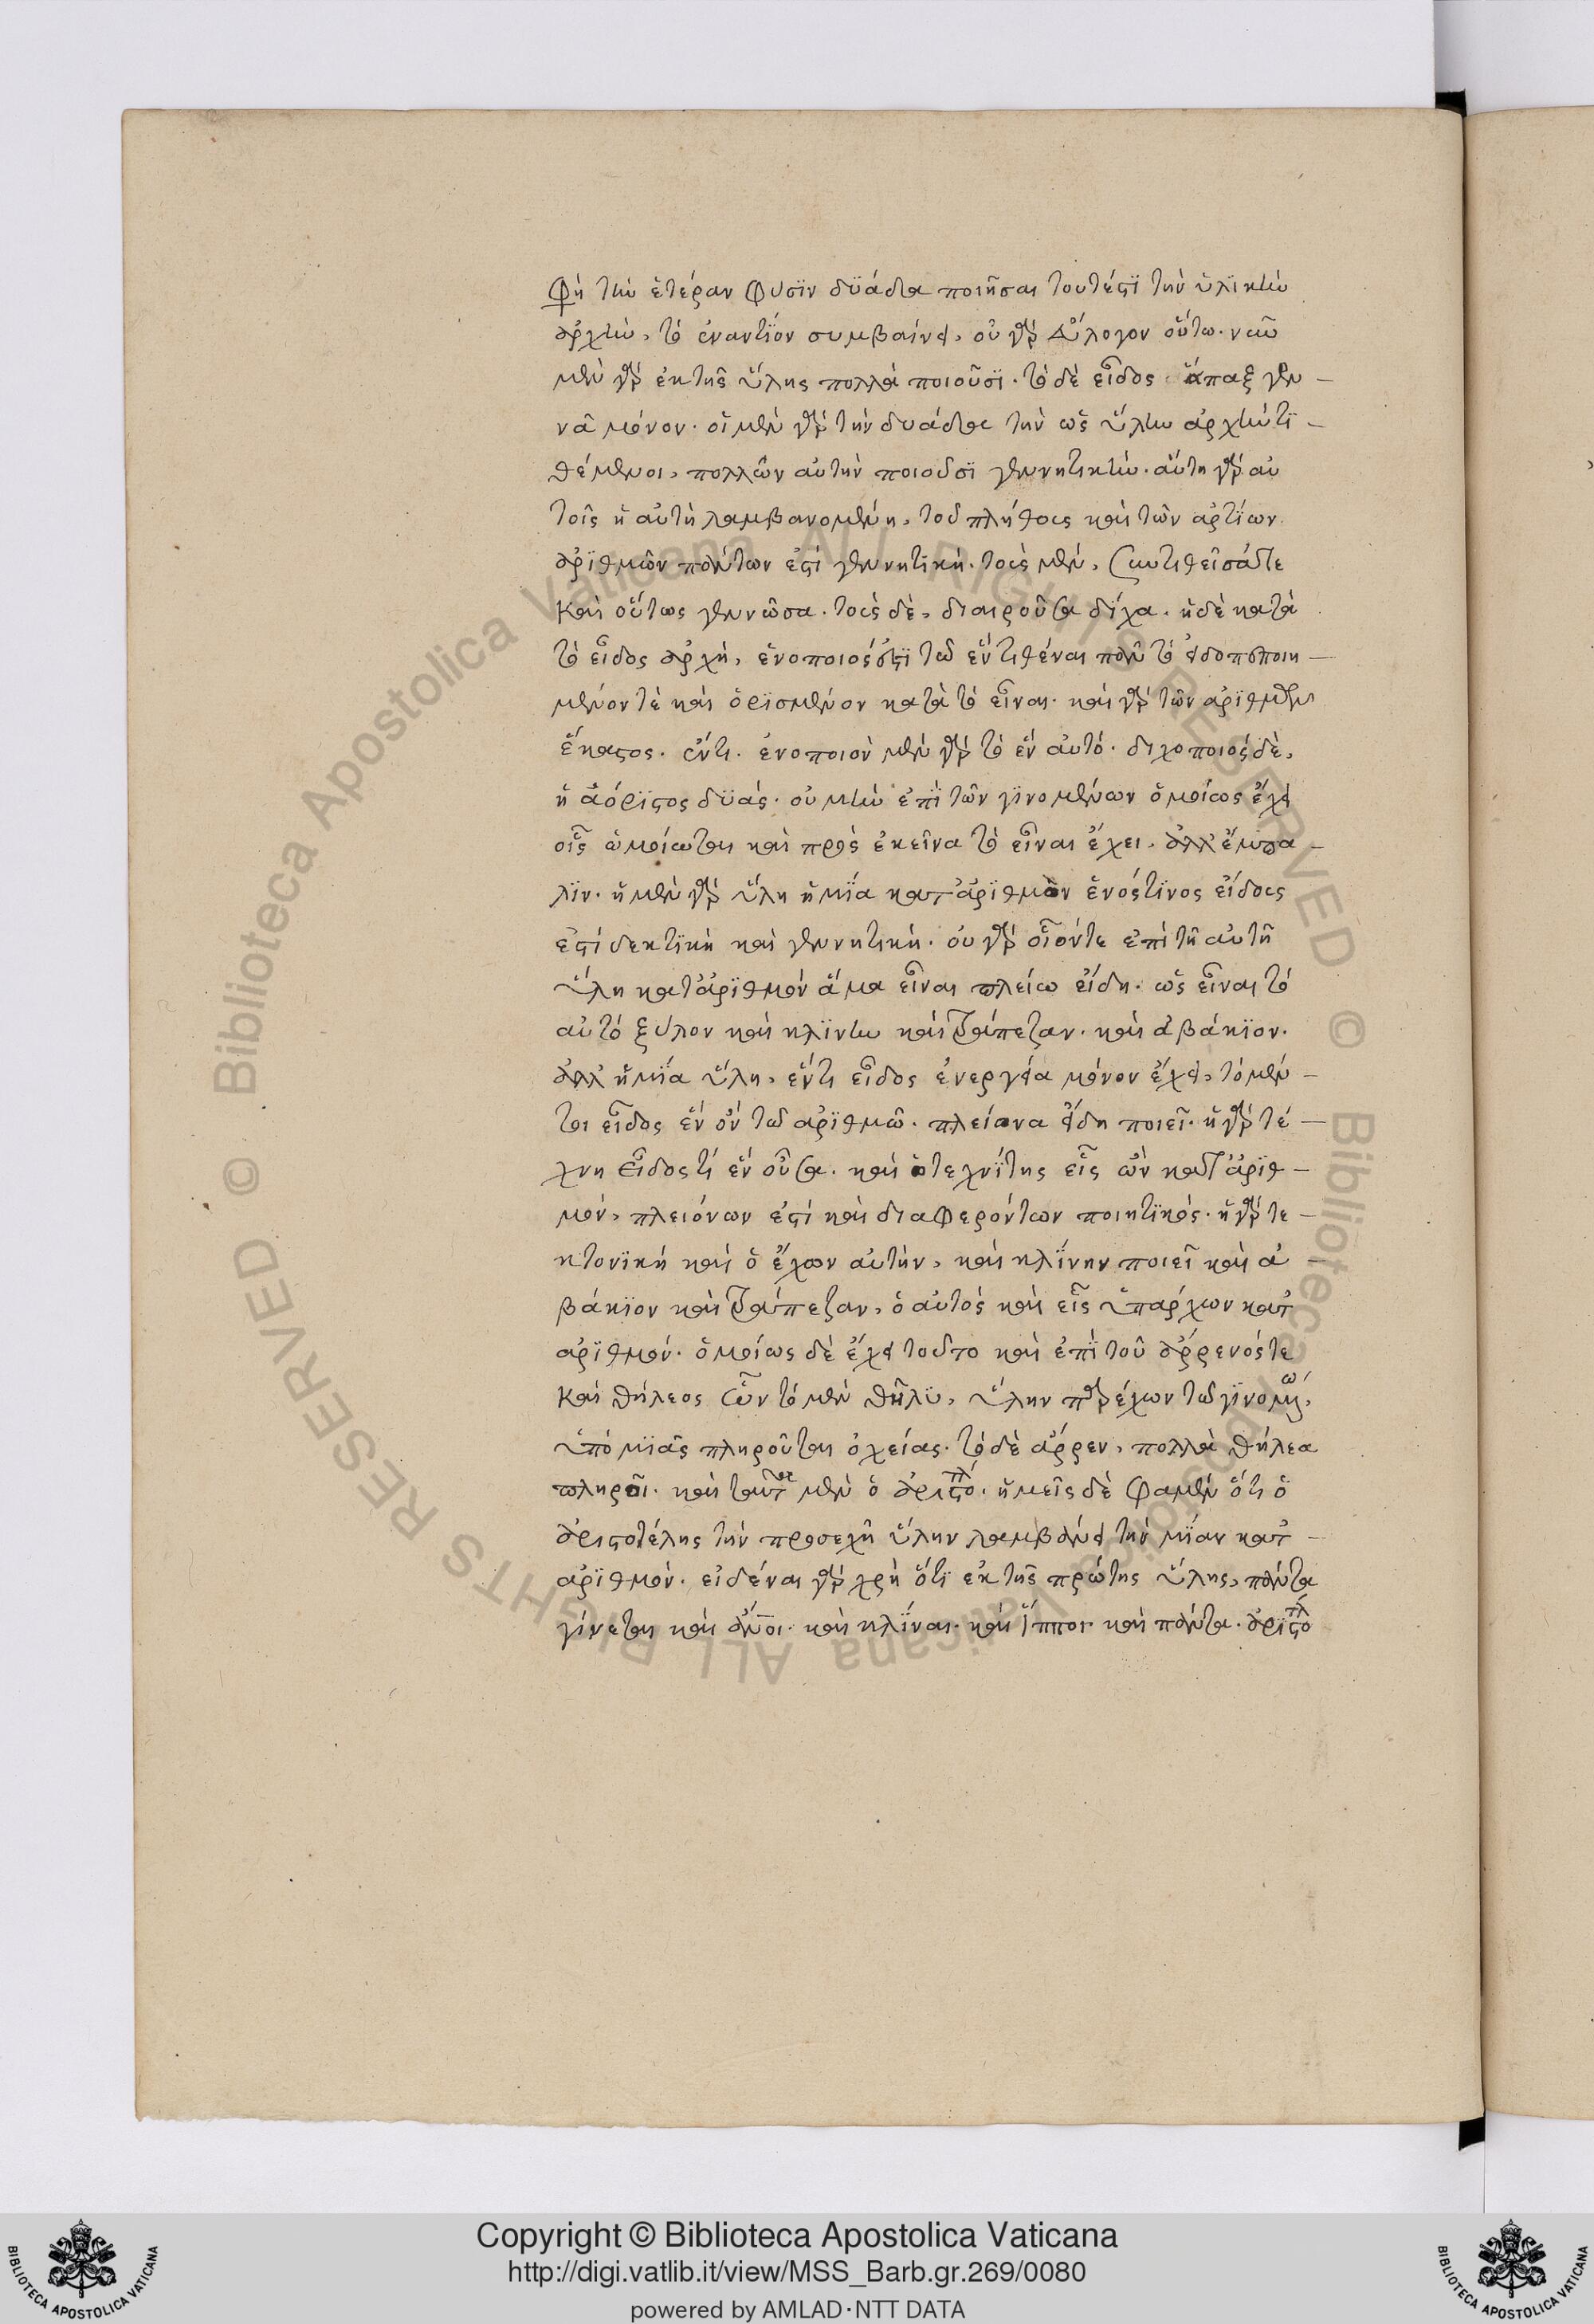 φὴ τὴν ἑτέραν φύσϊν δϋάδα ποιῆσαι τουτέστϊ τὴν ὑλϊκὴν
ἀρχὴν, τὸ ἐναντΐον συμβαίνει, οὐ γὰρ εὔλογον οὕτω. νῦν
μὲν γὰρ ἐκ τῆς ὕλης πολλὰ ποιοῦσϊ. τὸ δὲ εἶδος ἅπαξ γεν–
νᾶ μόνον. οἱ μὲν γὰρ τὴν δυάδα τὴν ὡς ὕλην ἀρχὴν τϊ–
θέμενοι, πολλῶν αὐτὴν ποιοῦσϊ γεννητικὴν. αὕτη γὰρ αὐ
τοῖς ἡ αὐτὴ λαμβανομένη, τοῦ πλήθους καὶ τῶν ἀρτΐων
ἀρϊθμῶν πάντων ἐστὶ γεννητϊκή. τοὺς μὲν, συντιθεῖσά τε
καὶ οὕτως γεννῶσα. τοὺς δὲ, διαιροῦσα δίχα. ἡ δὲ κατὰ
τὸ εἶδος ἀρχὴ, ἑνοποιός ἐστϊ τῶ ἕν τιθέναι πᾶν τὸ εἰδοπεποιη–
μένον τὲ καὶ ὁρϊσμένον κατὰ τὸ εἶναι. καὶ γὰρ τῶν ἀρϊθμῶν
ἕκαστος. ἕν τι. ἑνοποιὸν μὲν γὰρ τὸ ἓν αὐτό. διχοποιός δὲ,
ἡ ἀόρϊστος δϋάς. οὐ μὴν ἐπὶ τῶν γϊνομένων ὁμοίως ἔχει
οἷς ὡμοίωται καὶ πρὸς ἐκεῖνα τὸ εἶναι ἔχει. ἀλλ' ἔμπα–
λϊν. ἡ μὲν γὰρ ὕλη ἡ μΐα κατ' ἀρϊθμὸν ἑνός τϊνος εἴδους
ἐστὶ δεκτϊκὴ καὶ γεννητικὴ. οὐ γὰρ οἷόν τε ἐπὶ τῆ αὐτῆ
ὕλη κατ' ἀρϊθμὸν ἅμα εἶναι πλείω εἴδη. ὡς εἶναι τὸ
αὐτὸ ξύλον καὶ κλΐνην καὶ τράπεζαν. καὶ ἀβάκϊον.
ἀλλ' ἡ μΐα ὕλη, ἕν τι εἶδος ἐνεργεία μόνον ἔχει, τὸ μέν–
τοι εἶδος ἓν ὂν τῶ ἀρϊθμῶ. πλείονα εἴδη ποιεῖ. ἡ γὰρ τέ–
χνη εἶδος τί ἓν οὖσα. καὶ ὁ τεχνΐτης εἷς ὢν κατ' ἀρϊθ–
μὸν, πλειόνων ἐστὶ καὶ διαφερόντων ποιητϊκός. ἡ γὰρ τε–
κτονϊκὴ καὶ ὁ ἔχων αὐτὴν, καὶ κλΐνην ποιεῖ καὶ ἀ
βάκϊον καὶ τράπεζαν, ὁ αὐτὸς καὶ εἷς ὑπάρχων κατ'
ἀρϊθμόν. ὁμοίως δὲ ἔχει τοῦτο καὶ ἐπὶ τοῦ ἄρρενός τε
καὶ θήλεος ὧν τὸ μὲν θῆλϋ, ὕλην παρέχων τῶ γϊνομένω,
ὑπὸ μϊᾶς πληροῦται ὀχείας. τὸ δὲ ἄρρεν, πολλὰ θήλεα
πληροῖ. καὶ ταῦτα μὲν ὁ ἀριστοτέλ. ἡμεῖς δὲ φαμὲν ὅτι ὁ
ἀριστοτέλης τὴν προσεχῆ ὕλην λαμβάνει τὴν μΐαν κατ'
ἀρϊθμὸν. εἰδέναι γὰρ χρὴ ὅτϊ ἐκ τῆς πρώτης ὕλης, πάντα
γίνεται καὶ ἄνοι. καὶ κλΐναι. καὶ ἵπποι καὶ πάντα. ἀρϊστοτέλ